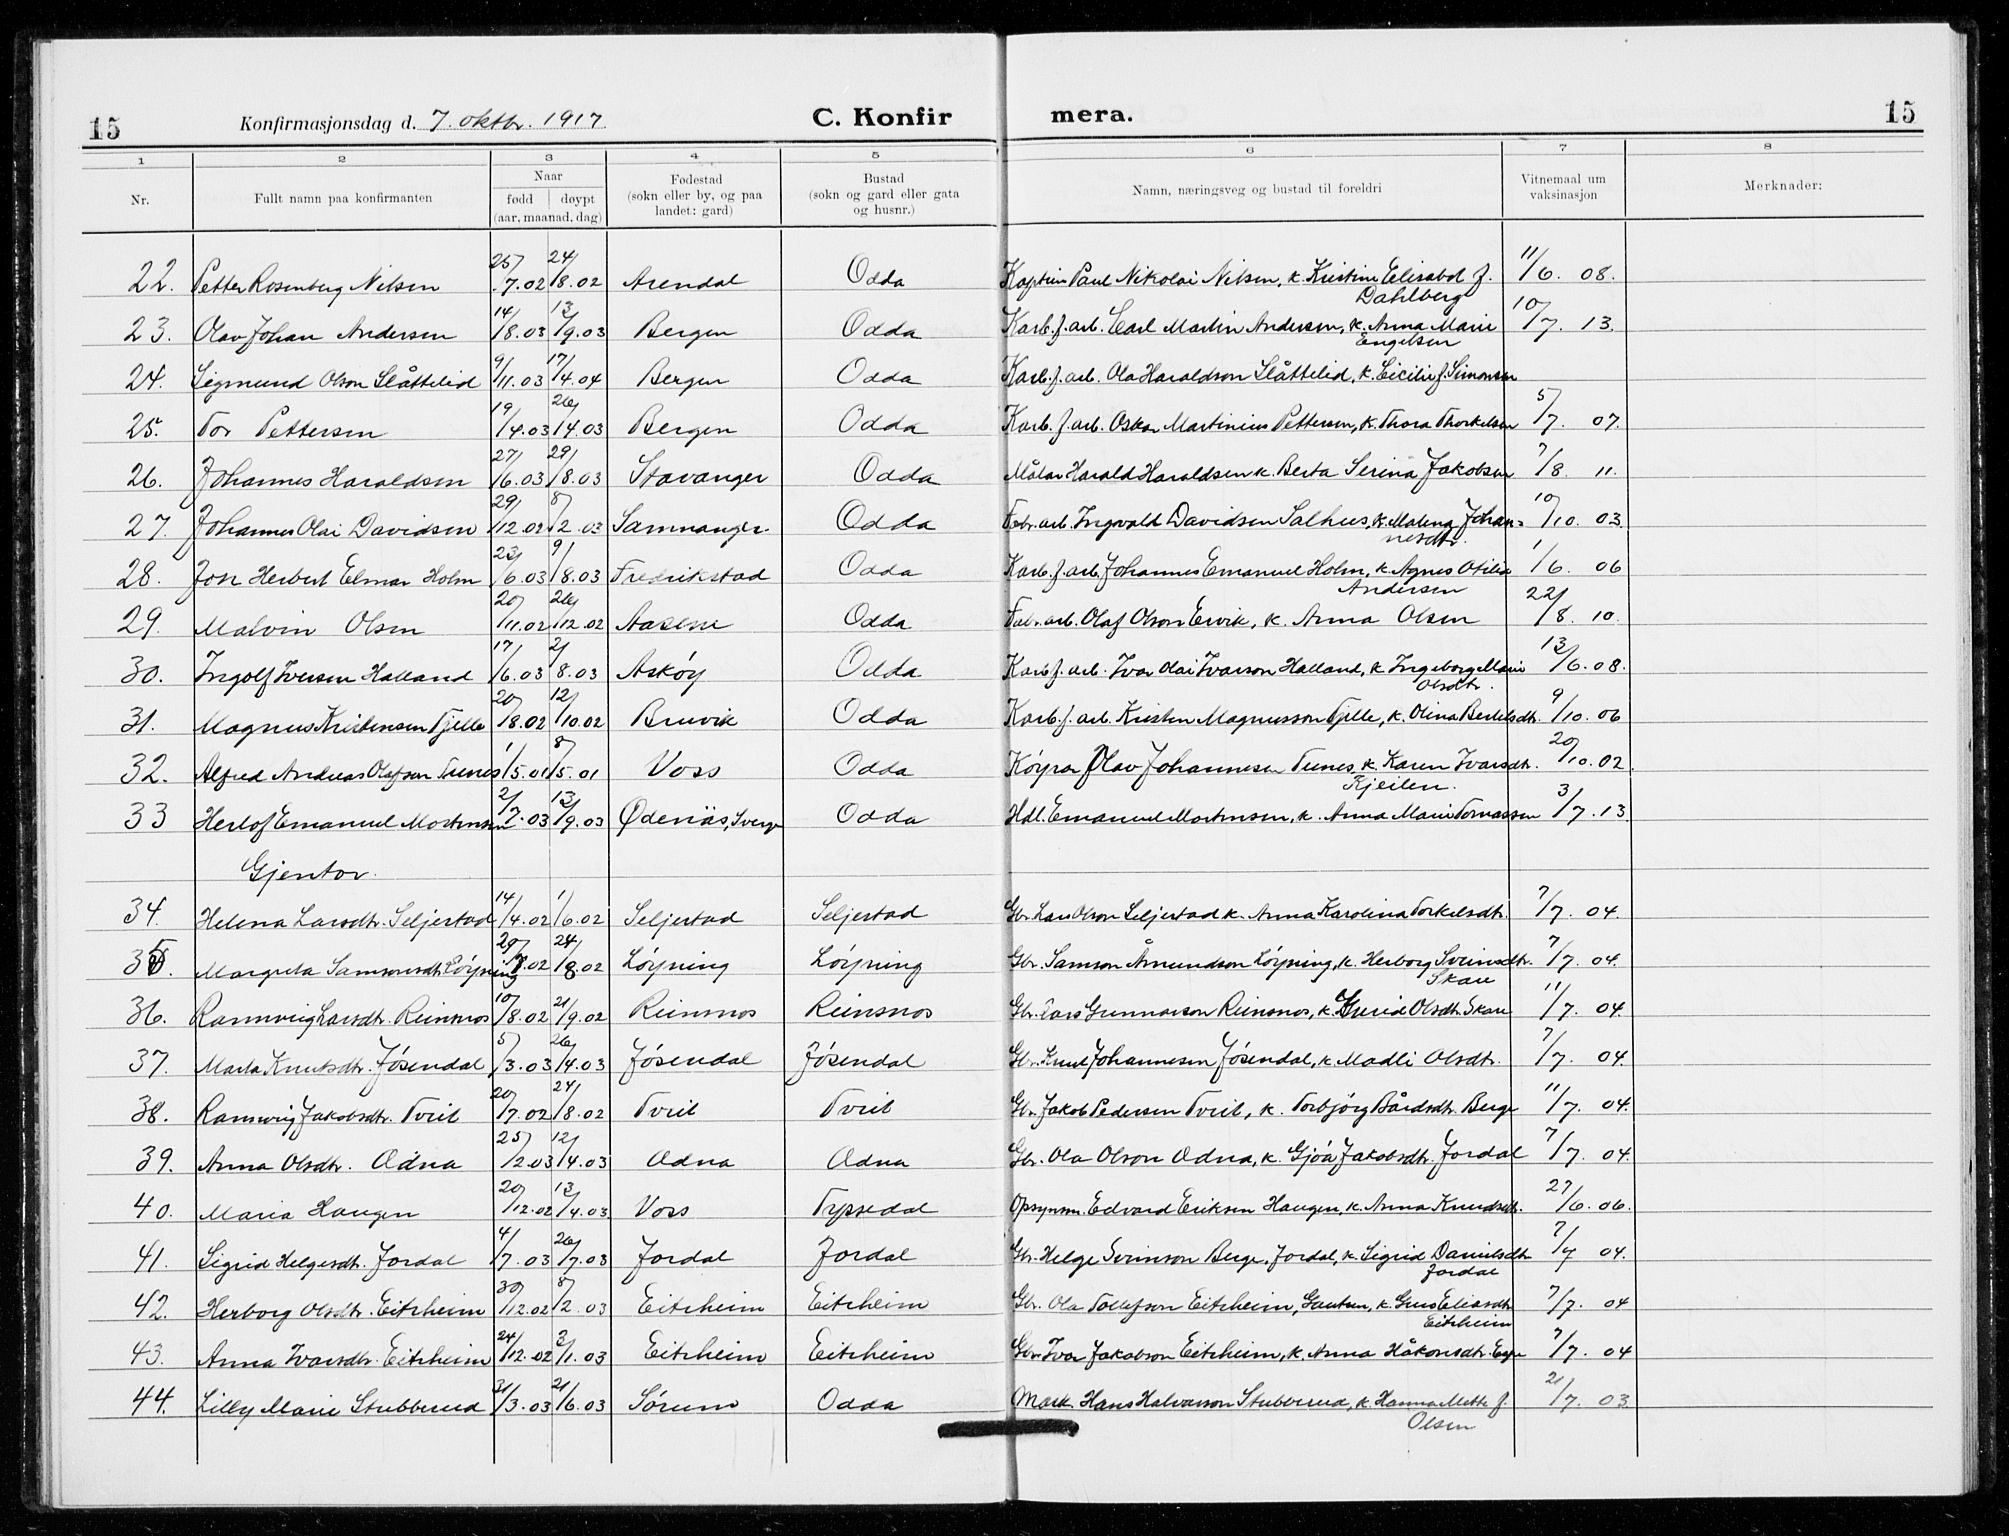 15 Konfirmasjonsdag d. 7. oktbr. 1917. C. Konfirmera. 15
1 2 3 4 5 6 7 8
Nr. Fullt namn paa konfirmanten Naar fødd døypt (aar, maanad, dag) Fødestad (sokn eller by, og paa landet: gard) Bustad (sokn og gard eller gata og husnr.) Namn, næringsveg og bustad til foreldri Vitnemaal um vaksinasjon Merknader:
22. Petter Rosenberg Nilsen 25/7.02 24/8.02 Arendal Odda Kaptein Paul Nikolai Nilsen, k. Kristine Elisabet f. Dahlberg 11/6. 08.
23. Olav Johan Andersen 14/8.03 13/9.03 Bergen Odda Karb.f.arb. Carl Martin Andersen, k. Anna Marie Engelsen 10/7. 13.
24. Sigmund Olson Slåttelid 9/11.03 17/4.04 Bergen Odda Karb.f.arb. Ola Haraldson Slåttelid, k. Cicilie f. Simonsen
25. Tor Pettersen 19/4.03 26/4.03 Bergen Odda Karb.f.arb. Oskar Martinius Pettersen, k. Thora Thorkelsen 5/7. 07.
26. Johannes Haraldsen 27/6.03 29/8.03 Stavanger Odda Målar Harald Haraldsen k. Berta Serina Jakobsen 7/8. 11.
27. Johannes Olai Davidsen 29/12.02 8/2.03 Samnanger Odda Fabr.arb. Ingvald Davidsen Salhus, k. Malena Johannesdtr. 10/10. 03.
28. Jon Herbert Elmar Holm 23/6.03 9/8.03 Fredrikstad Odda Karb.f.arb. Johannes Emanuel Holm, k. Agnes Otilia Andersen 1/6. 06
29. Malvin Olsen 20/11.02 26/12.02 Aasene Odda Fabr.arb. Olaf Olson Ervik, k. Anna Olsen 22/8. 10.
30. Ingolf Iversen Halland 17/6.03 2/8.03 Askøy Odda Karb.f.arb. Ivar Olai Ivarson Halland, k. Ingeborg Marie Olsdtr. 13/6. 08.
31. Magnus Kristensen Tjelle 20/8.02 12/10.02 Bruvik Odda Karb.f.arb. Kristen Magnusson Tjelle, k. Olina Bertelsdtr. 9/10. 06
32. Alfred Andreas Olafson Tunes 1/5.01 8/5.01 Voss Odda Køyrar Olav Johannesen Tunes, k. Karen Ivarsdtr. Kjeilen. 20/10. 02.
33 Herlof Emanuel Mortensen 2/7.03 13/9.03 Ødenäs, Sverge Odda Hdl. Emanuel Mortensen, k. Anna Marie Tomassen 3/7. 13.
Gjentor.
34. Helena Larsdtr. Seljestad 14/4.02 1/6.02 Seljestad Seljestad Gbr. Lars Olson Seljestad k. Anna Karolina Torkelsdtr. 7/7. 04.
35. Margreta Samsonsdtr. Løyning 29/7.02 24/8.02 Løyning Løyning Gbr. Samson Åmundson Løyning, k. Herborg Sveinsdtr. Skare 7/7. 04.
36. Rannveig Larsdtr. Reinsnos 10/8.02 21/9.02 Reinsnos Reinsnos Gbr. Lars Gunnarson Reinsnos, k. Gurid Olsdtr. Skare 11/7. 04.
37. Marta Knutsdtr. Jøsendal 5/3.03 26/4.03 Jøsendal Jøsendal Gbr. Knut Johannesen Jøsendal, k. Madli Olsdtr. 7/7. 04.
38. Rannveig Jakobsdtr. Tveit 20/7.02 24/8.02 Tveit Tveit Gbr. Jakob Pedersen Tveit, k. Torbjørg Bårdsdtr. Berge 11/7. 04.
39. Anna Olsdtr. Ædna 25/2.03 12/4.03 Ædna Ædna Gbr. Ola Olson Ædna, k. Gjøa Jakobsdtr. Jordal 7/7. 04.
40. Maria Haugen 20/12.02 13/4.03. Voss Tyssedal Opsynsm. Edvard Eriksen Haugen, k. Anna Knudsdtr. 27/6. 06.
41. Sigrid Helgesdtr. Jordal 4/7.03 26/7.03 Jordal Jordal Gbr. Helge Sveinson Berge, Jordal, k. Sigrid Danielsdtr. Jordal 7/7 04.
42. Herborg Olsdtr. Eitrheim 30/12.02 8/2.03 Eitrheim Eitrheim Gbr. Ola Tollefson Eitrheim, k. Guro Eliasdtr. Eitrheim 7/7. 04
43. Anna Ivarsdtr. Eitrheim 24/12.02 3/1.03 Eitrheim Eitrheim Gbr. Ivar Jakobson Eitrheim, k. Anna Håkonsdtr. 7/7. 04
44. Lilly Marie Stubberud 31/3.03 21/6.03 Sørum Odda Mask. Hans Halvarson Stubberud, k. Hanna Mette f. Olsen 21/7. 03